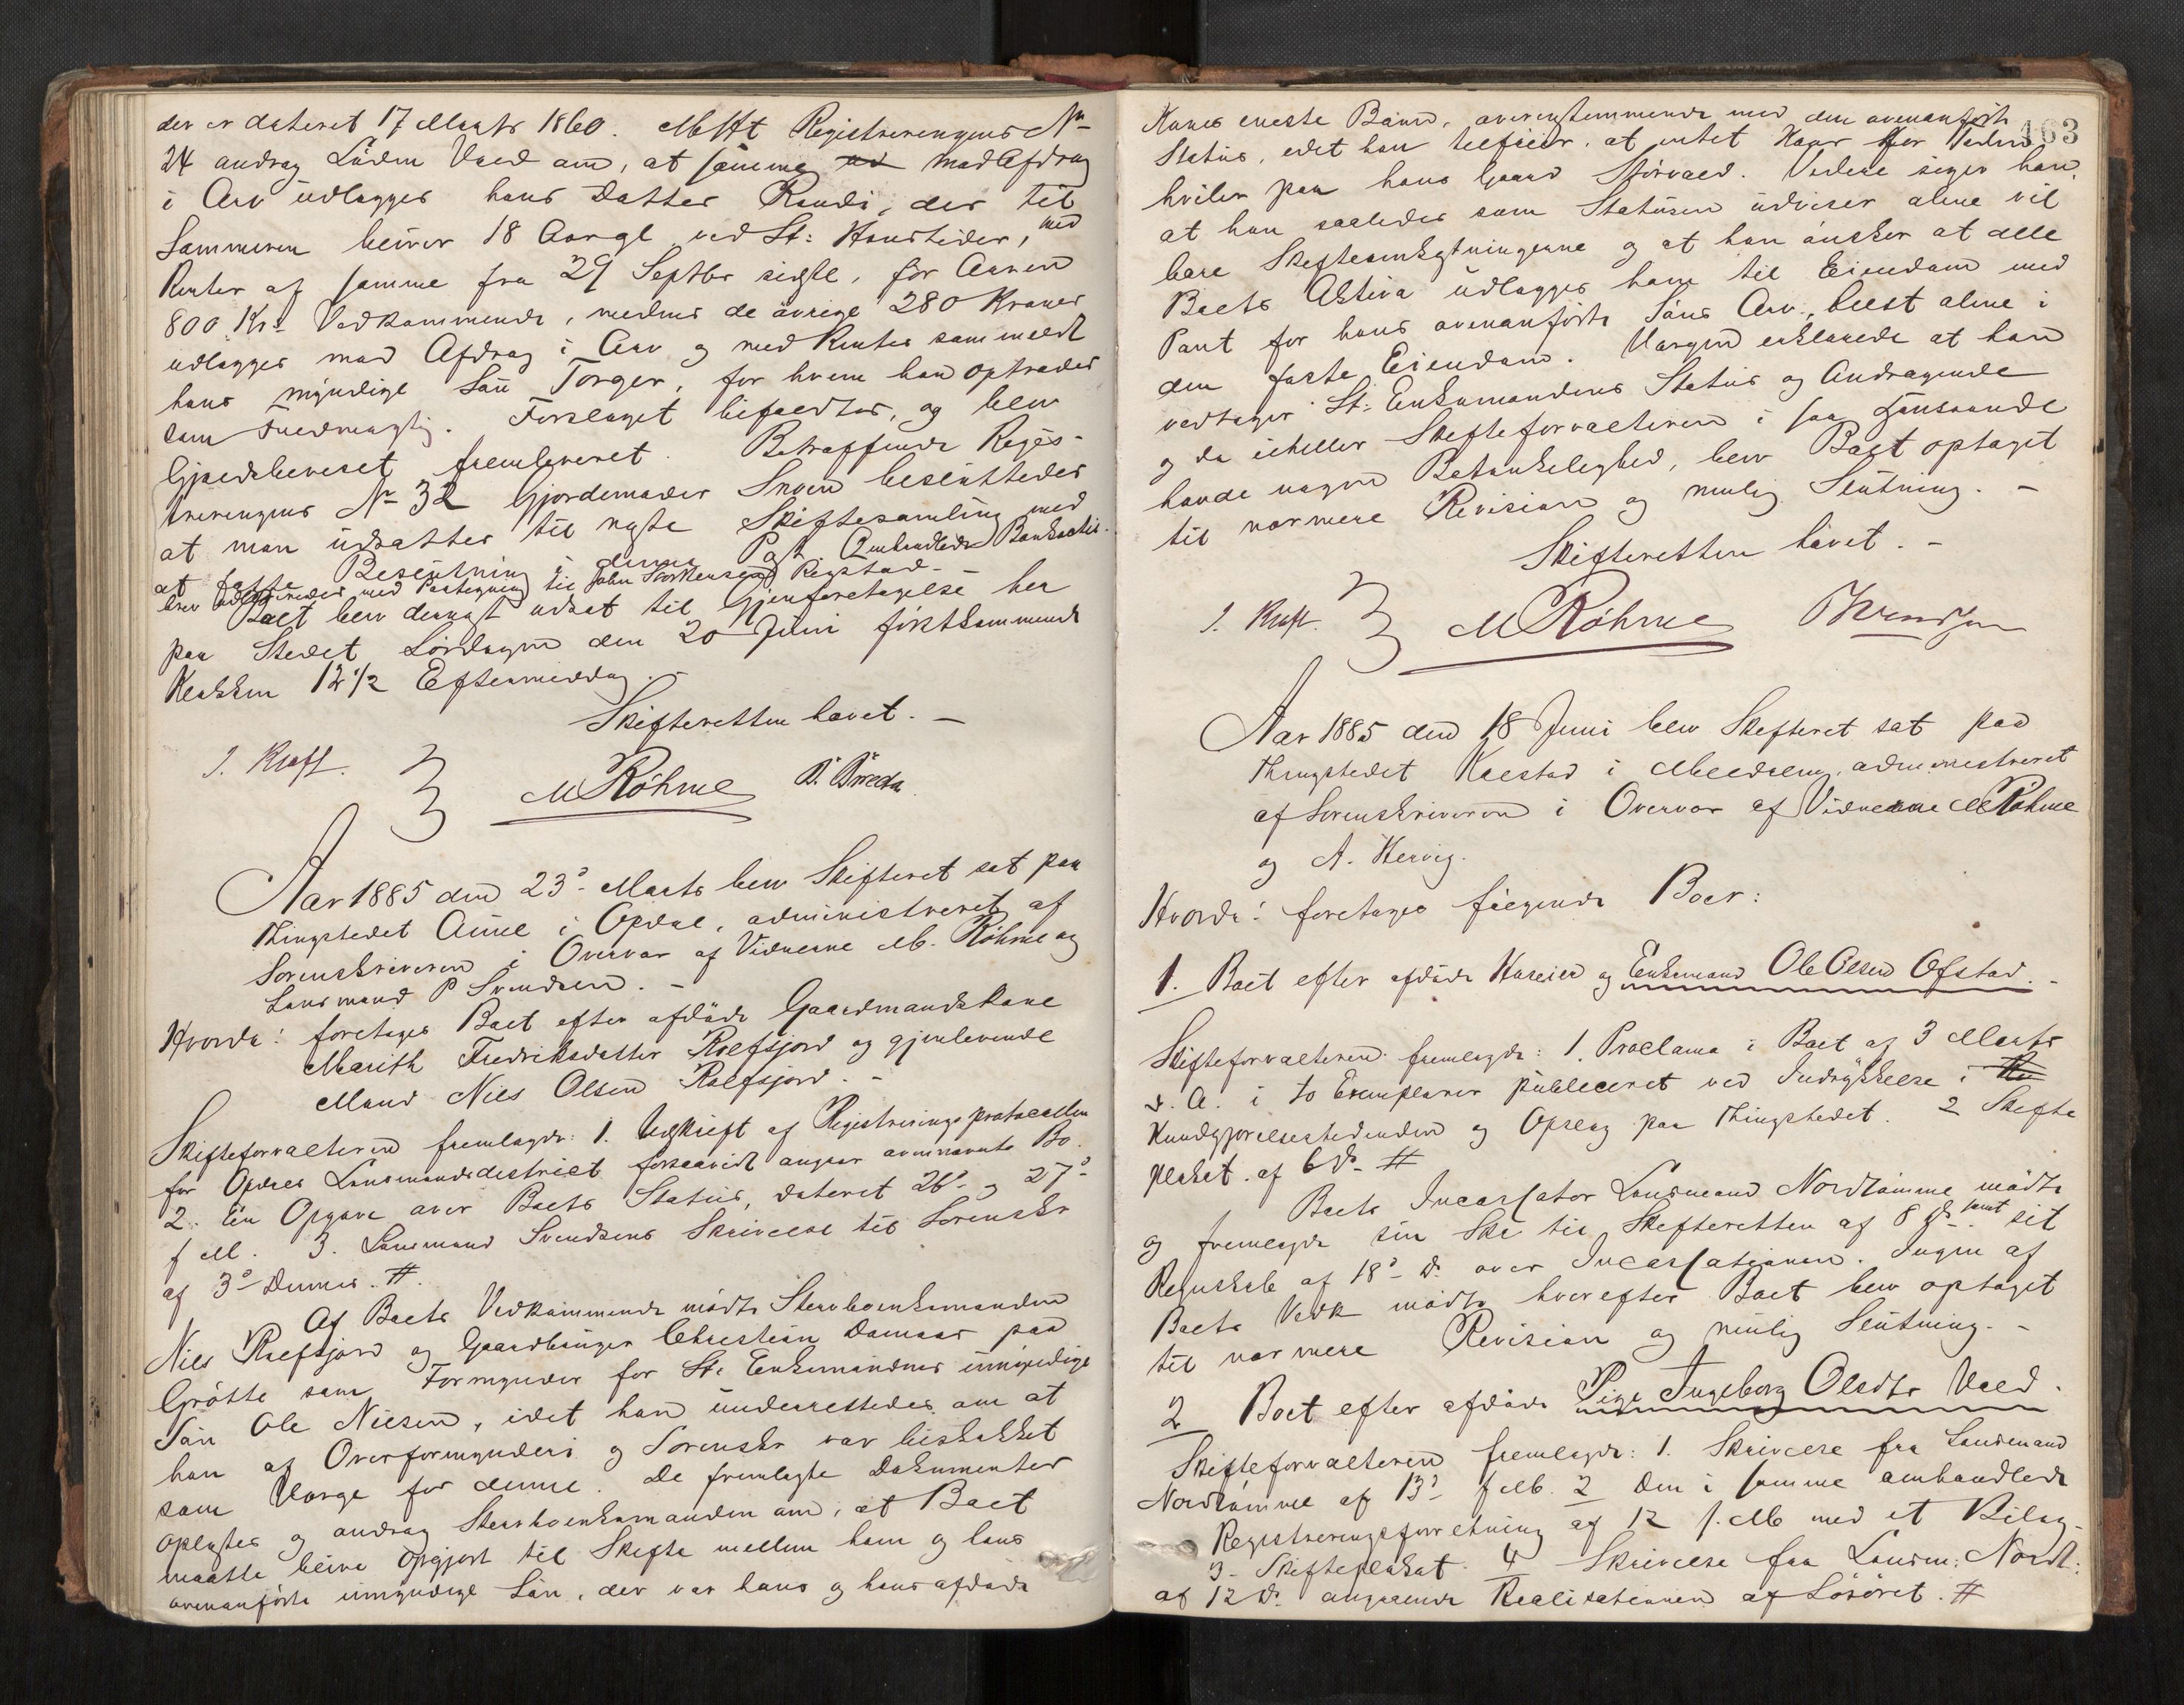 der er dateret 17 Marts 1860. M H t Registreringens No
24 androg Lüder Vaed om, at samme mod Afdrag
i Arv udlægges hans Datter Randi, der til
Sommeren bliver 18 Aar gl ved St: Hanstider, med
Renter af samme fra 29 Septbr sidstl. for Arven
800 Krs Vedkommende, medens de øvrige 280 Kroner
udlægges mod Afdrag i Arv og med Renter som meldt
hans myndige Søn Torger, for hvem han optræder
som Fuldmægtig. Forslaget bifaldtes, og blev
Gjældsbeviset fremleveret. Betræffende Regis-
treringens No 32 Gjordemoder Snoen besluttedes
at man udsættes til næste Skiftesamling med
at fatte Beslutning i denne Post. Omhandlede Bankactie-
brev udleveredes med Paategning til John Storkensen Regstad.
Boet blev dernæst udsat til Gjenforetagelse her
paa Stedet Lørdagen den 20 Juni førstkommende
Klokken 12 1/2 Eftermiddag. -
Skifteretten hævet. -
J. Kraft. M Röhme
Aar 1885 den 23de Marts blev Skifteret sat paa
Thingstedet Aune i Opdal, administreret af
Sorenskriveren i Overvær af Vidnerne M. Röhme og
Lensmand P Svendsen. -
Hvorda: foretages Boet efter afdøde Gaardmandskone
Marith Fredriksdatter Rolfsjord og gjenlevende
Mand Nils Olsen Rolfsjord. -
Skifteforvalteren fremlagde: 1. Udskrift af Registreringsprotocollen
for Opdals Lensmandsdistrict forsaavidt angaar ovennævnte Bo.
2. En Opgave over Boets Status, dateret 26de og 27de
f M. 3. Lensmand Svendsens Skrivelse til Sorenskr
af 3de Dennes. #.
Af Boets Vedkommende mødte Stervboenkemanden
Nils Rolfsjord og Gaardbruger Christian Domaas paa
Grötte som Formynder for St: Enkemandens umyndige
Søn Ole Nilsen, idet han underrettedes om at
han af Overformynderi og Sorenskr var beskikket
som Værge for denne. De fremlagte Dokumenter
oplæstes og androg Stervboenkemanden om, at Boet
maatte blive opgjort til Skifte mellem ham og hans
ovenanførte umyndige Søn, der var hans og hans afdøde
163
Kones eneste Barn, overenstemmende med den ovenanførte
Status, idet han tilføier, at intet
hviler paa hans Gaard Störvaed. Videre siger han,
at han saaledes som Statusen udviser alene vil
bære Skifteomkostningerne og at han ønsker at alle
Boets Aktiva udlægges ham til Eiendom mod
Pant for hans ovenanførte Søns Arv, helst alene i
den faste Eiendom. Værgen erklærede at han
vedtager St: Enkemandens Status og Andragende
og da eiheller Skifteforvalteren i saa Henseende
havde nogen Betænkelighed, blev Boet optaget
til nærmere Revision og mulig Slutning. -
Skifteretten hævet. -
J. Kraft. M Röhme P Svendsen
Aar 1885 den 18 Juni blev Skifteret sat paa
Thingstedet Kaestad i Meldalen, administreret
af Sorenskriveren i Overvær af Vidnerne M Röhme
og A. Hervig.
Hvorda: foretages følgende Boer:
1. Boet efter afdøde Huseier og Enkemand Ole Olsen Ofstad. -
Skifteforvalteren fremlagde: 1. Proclama i Boet af 3 Marts
d. A. i to Exemplarer publiceret ved Indrykkelse i
Kundgjørelsestidenden og Opslag paa Thingstedet. 2 Skifte
plakat. af 6 ds. #
Boets Incassator Lensmand Nordtömme mødte
og fremlagde sin Skr til Skifteretten af 8 ds samt sit
Regnskab af 18de ds. over Incassationen. Ingen af
Boets Vedk mødte hvorefter Boet blev optaget
til nærmere Revision og mulig Slutning. -
2 Boet efter afdøde Pige Ingeborg Olsdtr Vaed.
Skifteforvalteren fremlagde: 1. Skrivelse fra Lensmand
Nordtömme af 13de f M. 2 Den i samme omhandlede
Registreringsforretning af 12 f. M med et Bilag.
3. Skifteplakat. 4 Skrivelse fra Lensm: Nordt:
af 12 ds. angaaende Realisationen af Løsøret. #